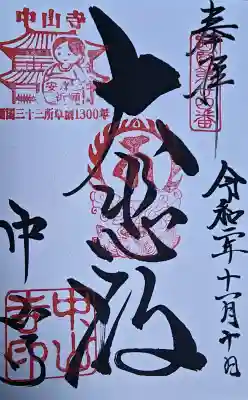 奉拝
令和二年十一月十一日
大悲殿
中山寺
中山寺
安産祈願
西国三十三所草創1300年
中山寺印